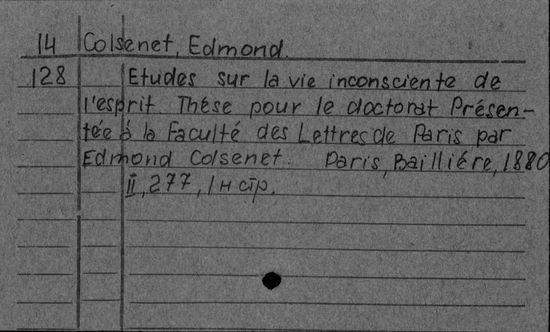 14 Colsenet, Edmond.
128 Etudes sur la vie inconsciente de
l'esprit. Thése pour le doctorat Présen-
tée à la Faculté des Lettres de Paris par
Edmond Colsenet. Paris, Bailliére, 1880
II, 277, 1 н стр.